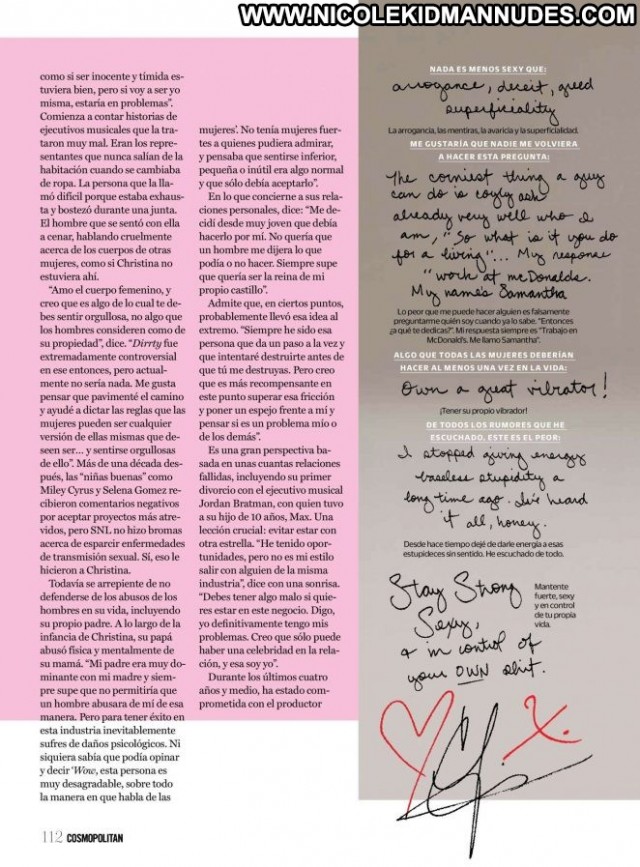 WWW.NICOLEKIDMANNUDES.COM
como si ser inocente y tímida es-
tuviera bien, pero si voy a ser yo
misma, estaría en problemas”.
Comienza a contar historias de
ejecutivos musicales que la tra-
taron muy mal. Eran los repre-
sentantes que nunca salían de la
habitación cuando se cambiaba
de ropa. La persona que la lla-
mó difícil porque estaba exhaus-
ta y bostezó durante una junta.
El hombre que se sentó con ella
a cenar, hablando cruelmente
acerca de los cuerpos de otras
mujeres, como si Christina no
estuviera ahí.
“Amo el cuerpo femenino, y
creo que es algo de lo cual te de-
bes sentir orgullosa, no algo que
los hombres consideren como de
su propiedad”, dice. “Dirrty fue
extremadamente controversial
en ese entonces, pero actual-
mente no sería nada. Me gusta
pensar que pavimenté el camino
y ayudé a dictar las reglas que las
mujeres pueden ser cualquier
versión de ellas mismas que de-
seen ser... y sentirse orgullosas
de ello”. Más de una década des-
pués, las “niñas buenas” como
Miley Cyrus y Selena Gomez re-
cibieron comentarios negativos
por aceptar proyectos más atre-
vidos, pero SNL no hizo bromas
acerca de esparcir enfermedades
de transmisión sexual. Sí, eso le
hicieron a Christina.
Todavía se arrepiente de no
defenderse de los abusos de los
hombres en su vida, incluyendo
su propio padre. A lo largo de la
infancia de Christina, su papá
abusó física y mentalmente de
su mamá. “Mi padre era muy do-
minante con mi madre y siem-
pre supe que no permitiría que
un hombre abusara de mí de esa
manera. Pero para tener éxito en
esta industria inevitablemente
sufres de daños psicológicos. Ni
siquiera sabía que podía opinar
y decir ‘Wow, esta persona es
muy desagradable, sobre todo
la manera en que habla de las
mujeres’. No tenía mujeres fuer-
tes a quienes pudiera admirar,
y pensaba que sentirse inferior,
pequeña o inútil era algo normal
y que sólo debía aceptarlo”.
En lo que concierne a sus rela-
ciones personales, dice: “Me de-
cidí desde muy joven que debía
hacerlo por mí. No quería que
un hombre me dijera lo que
podía o no hacer. Siempre supe
que quería ser la reina de mi
propio castillo”.
Admite que, en ciertos puntos,
probablemente llevó esa idea al
extremo. “Siempre he sido esa
persona que da un paso a la vez y
que intentaré destruirte antes de
que tú me destruyas. Pero creo
que es más recompensante en
este punto superar esa fricción
y poner un espejo frente a mí y
pensar si es un problema mío o
de los demás”.
Es una gran perspectiva ba-
sada en unas cuantas relaciones
fallidas, incluyendo su primer
divorcio con el ejecutivo musical
Jordan Bratman, con quien tuvo
a su hijo de 10 años, Max. Una
lección crucial: evitar estar con
otra estrella. “He tenido opor-
tunidades, pero no es mi estilo
salir con alguien de la misma
industria”, dice con una sonrisa.
“Debes tener algo malo si quie-
res estar en este negocio. Digo,
yo definitivamente tengo mis
problemas. Creo que sólo puede
haber una celebridad en la rela-
ción, y esa soy yo”.
Durante los últimos cuatro
años y medio, ha estado com-
prometida con el productor
NADA ES MENOS SEXY QUE:
arrogance, deceit, greed
superficiality
La arrogancia, las mentiras, la avaricia y la superficialidad.
ME GUSTARÍA QUE NADIE ME VOLVIERA
A HACER ESTA PREGUNTA:
The corniest thing a guy
can do is coyly ask
already very well who I
am, "So what is it you do
for a living"... My response
"work at McDonalds.
My name's Samantha
Lo peor que me puede hacer alguien es falsamente
preguntarme quién soy cuando ya lo sabe. “Entonces
¿a qué te dedicas?”. Mi respuesta siempre es “Trabajo en
McDonald's. Me llamo Samantha”.
ALGO QUE TODAS LAS MUJERES DEBERÍAN
HACER AL MENOS UNA VEZ EN LA VIDA:
Own a great vibrator!
¡Tener su propio vibrador!
DE TODOS LOS RUMORES QUE HE
ESCUCHADO, ESTE ES EL PEOR:
I stopped giving energy
baseless stupidity a
long time ago. I've heard
it all, honey.
Desde hace tiempo dejé de darle energía a esas
estupideces sin sentido. He escuchado de todo.
Stay Strong
Sexy,
& in control of
your OWN shit.
Mantente
fuerte, sexy
y en control
de tu propia
vida.
X.
112 COSMOPOLITAN